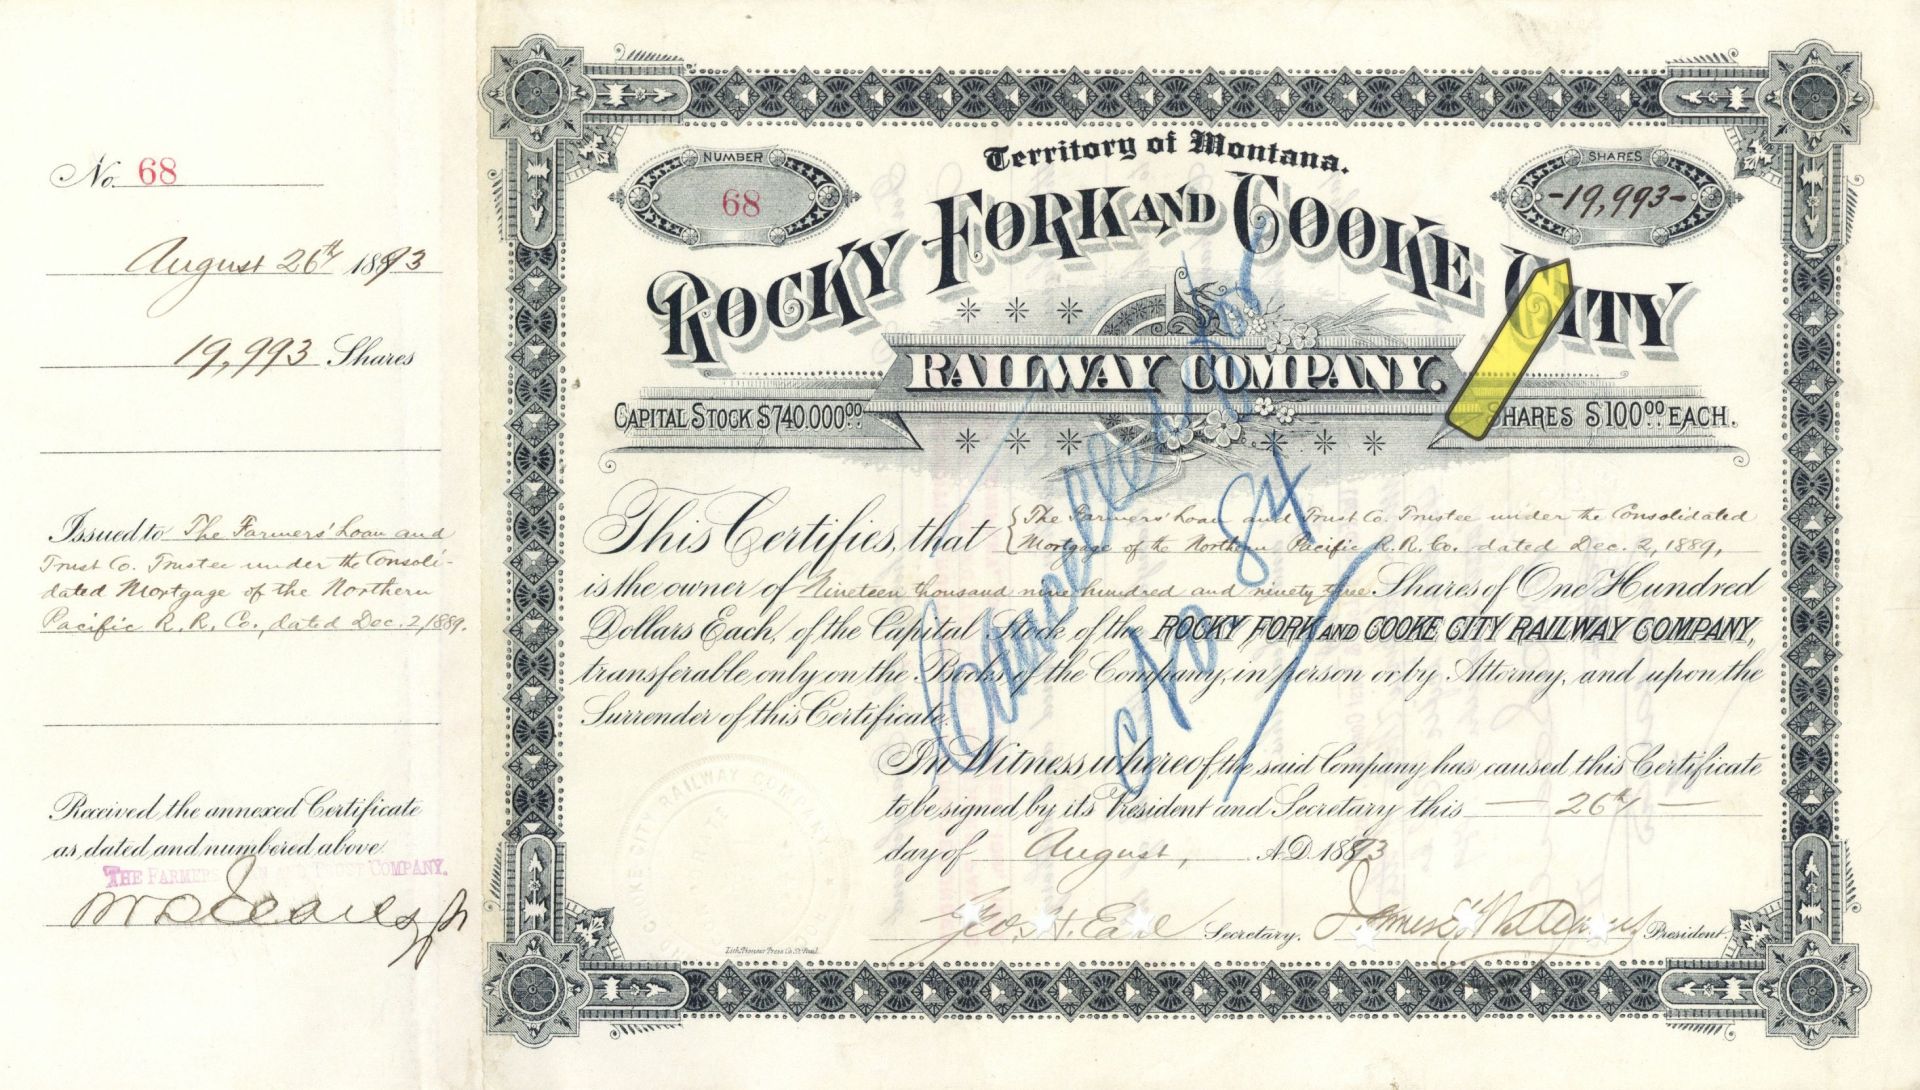 No. 68
August 26th 1893
19,993 Shares
Issued to The Farmers' Loan and
Trust Co. Trustee under the Consoli-
dated Mortgage of the Northern
Pacific R. R. Co., dated Dec. 2, 1889.
Received the annexed Certificate
as dated and numbered above
THE FARMERS LOAN AND TRUST COMPANY.
NUMBER
68
Territory of Montana.
SHARES
-19,993-
ROCKY FORK AND COOKE CITY
RAILWAY COMPANY.
CAPITAL STOCK $740.000.00
SHARES $100.00 EACH.
Cancelled for
No 84
This Certifies, that The Farmers' Loan and Trust Co. Trustee under the Consolidated
Mortgage of the Northern Pacific R. R. Co. dated Dec. 2, 1889,
is the owner of Nineteen thousand nine hundred and ninety three Shares of One Hundred
Dollars Each, of the Capital Stock of the ROCKY FORK AND COOKE CITY RAILWAY COMPANY,
transferable only on the Books of the Company, in person or by Attorney, and upon the
Surrender of this Certificate.
In Witness whereof, the said Company has caused this Certificate
to be signed by its President and Secretary this — 26th —
day of August, A.D. 1893
Geo. H. Earl Secretary. President.
COOKE CITY RAILWAY COMPANY
Lith. Pioneer Press Co. St. Paul.